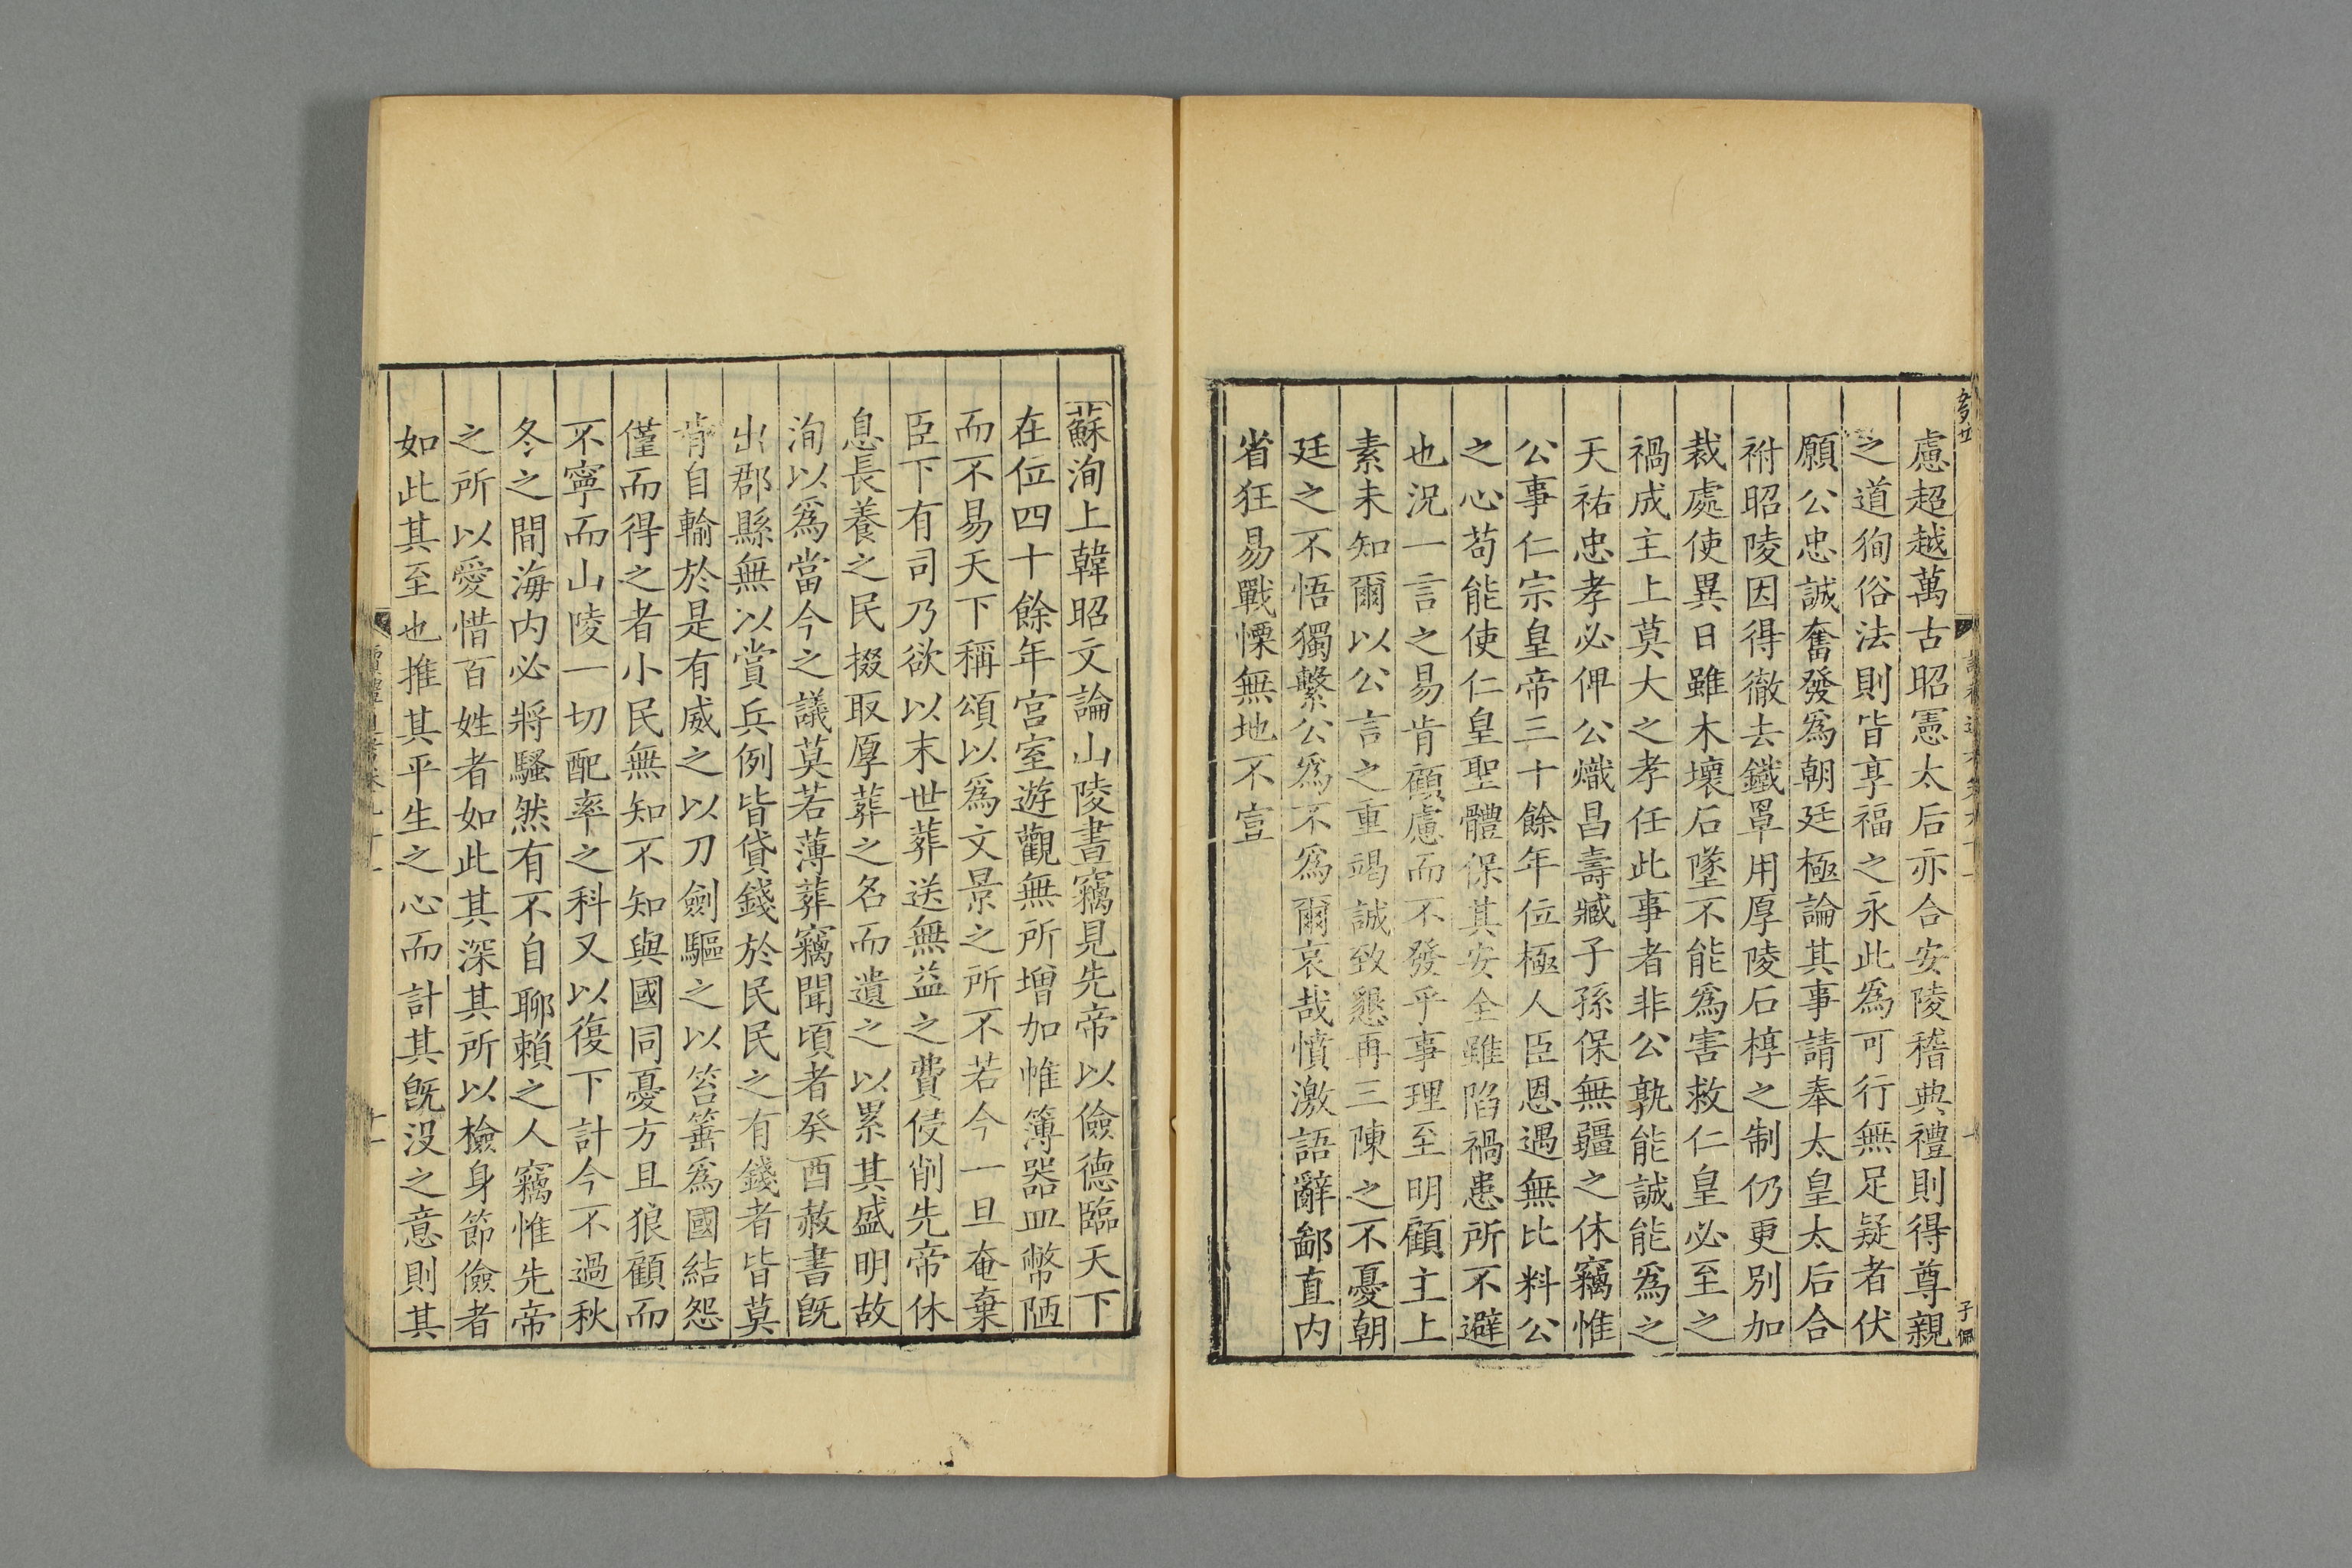 慮超越萬古昭憲太后亦合安陵稽典禮則得尊親
之道狥俗法則皆享福之永此爲可行無足疑者伏
願公忠誠奮發爲朝廷極論其事請奉太皇太后合
祔昭陵因得徹去鐵罩用厚陵石槨之制仍更別加
裁處使異日雖木壞石墜不能爲害救仁皇必至之
禍成主上莫大之孝任此事者非公孰能誠能爲之
天祐忠孝必俾公熾昌壽臧子孫保無疆之休竊惟
公事仁宗皇帝三十餘年位極人臣恩遇無比料公
之心苟能使仁皇聖體保其安全雖陷禍患所不避
也況一言之易肯顧慮而不發乎事理至明顧主上
素未知爾以公言之重竭誠致懇再三陳之不憂朝
廷之不悟獨繫公爲不爲爾哀哉憤激語辭鄙直內
省狂易戰慄無地不宣
子佩
蘇洵上韓昭文論山陵書竊見先帝以儉德臨天下
在位四十餘年宮室遊觀無所增加帷簿器皿幣陋
而不易天下稱頌以爲文景之所不若今一旦奄棄
臣下有司乃欲以末世葬送無益之費侵削先帝休
息長養之民掇取厚葬之名而遺之以累其盛明故
洵以爲當今之議莫若薄葬竊聞頃者癸酉赦書旣
出郡縣無以賞兵例皆貸錢於民民之有錢者皆莫
肯自輸於是有威之以刀劍驅之以笞箠爲國結怨
僅而得之者小民無知不知與國同憂方且狼顧而
不寧而山陵一切配率之科又以復下計今不過秋
冬之間海內必將騷然有不自聊賴之人竊惟先帝
之所以愛惜百姓者如此其深其所以檢身節儉者
如此其至也推其平生之心而計其旣沒之意則其
十一